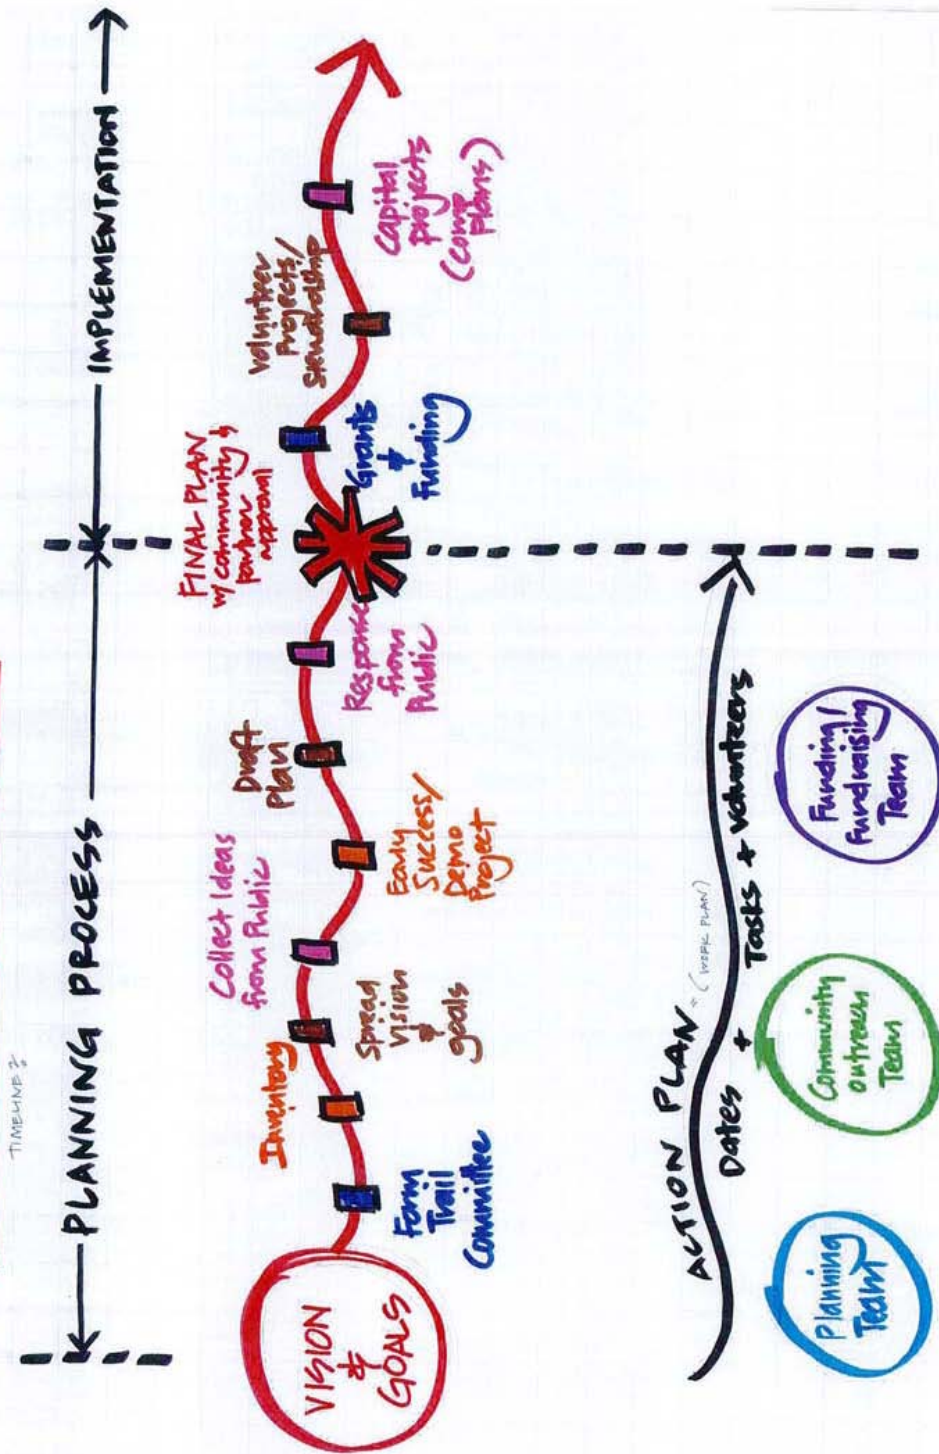 TIMELINE?
PLANNING PROCESS
IMPLEMENTATION
VISION
&
GOALS
Form
Trail
Committee
Inventory
Spread
vision
&
goals
Collect Ideas
from Public
Early
Success/
Demo
Project
Draft
Plan
Response
from
Public
FINAL PLAN
w/ community &
partner
approval
Grants
&
Funding
Volunteer
Projects/
Stewardship
Capital
projects
(comp
plans)
ACTION PLAN = (WORK PLAN)
Dates + Tasks + Volunteers
Planning
Team
Community
outreach
Team
Funding/
Fundraising
Team